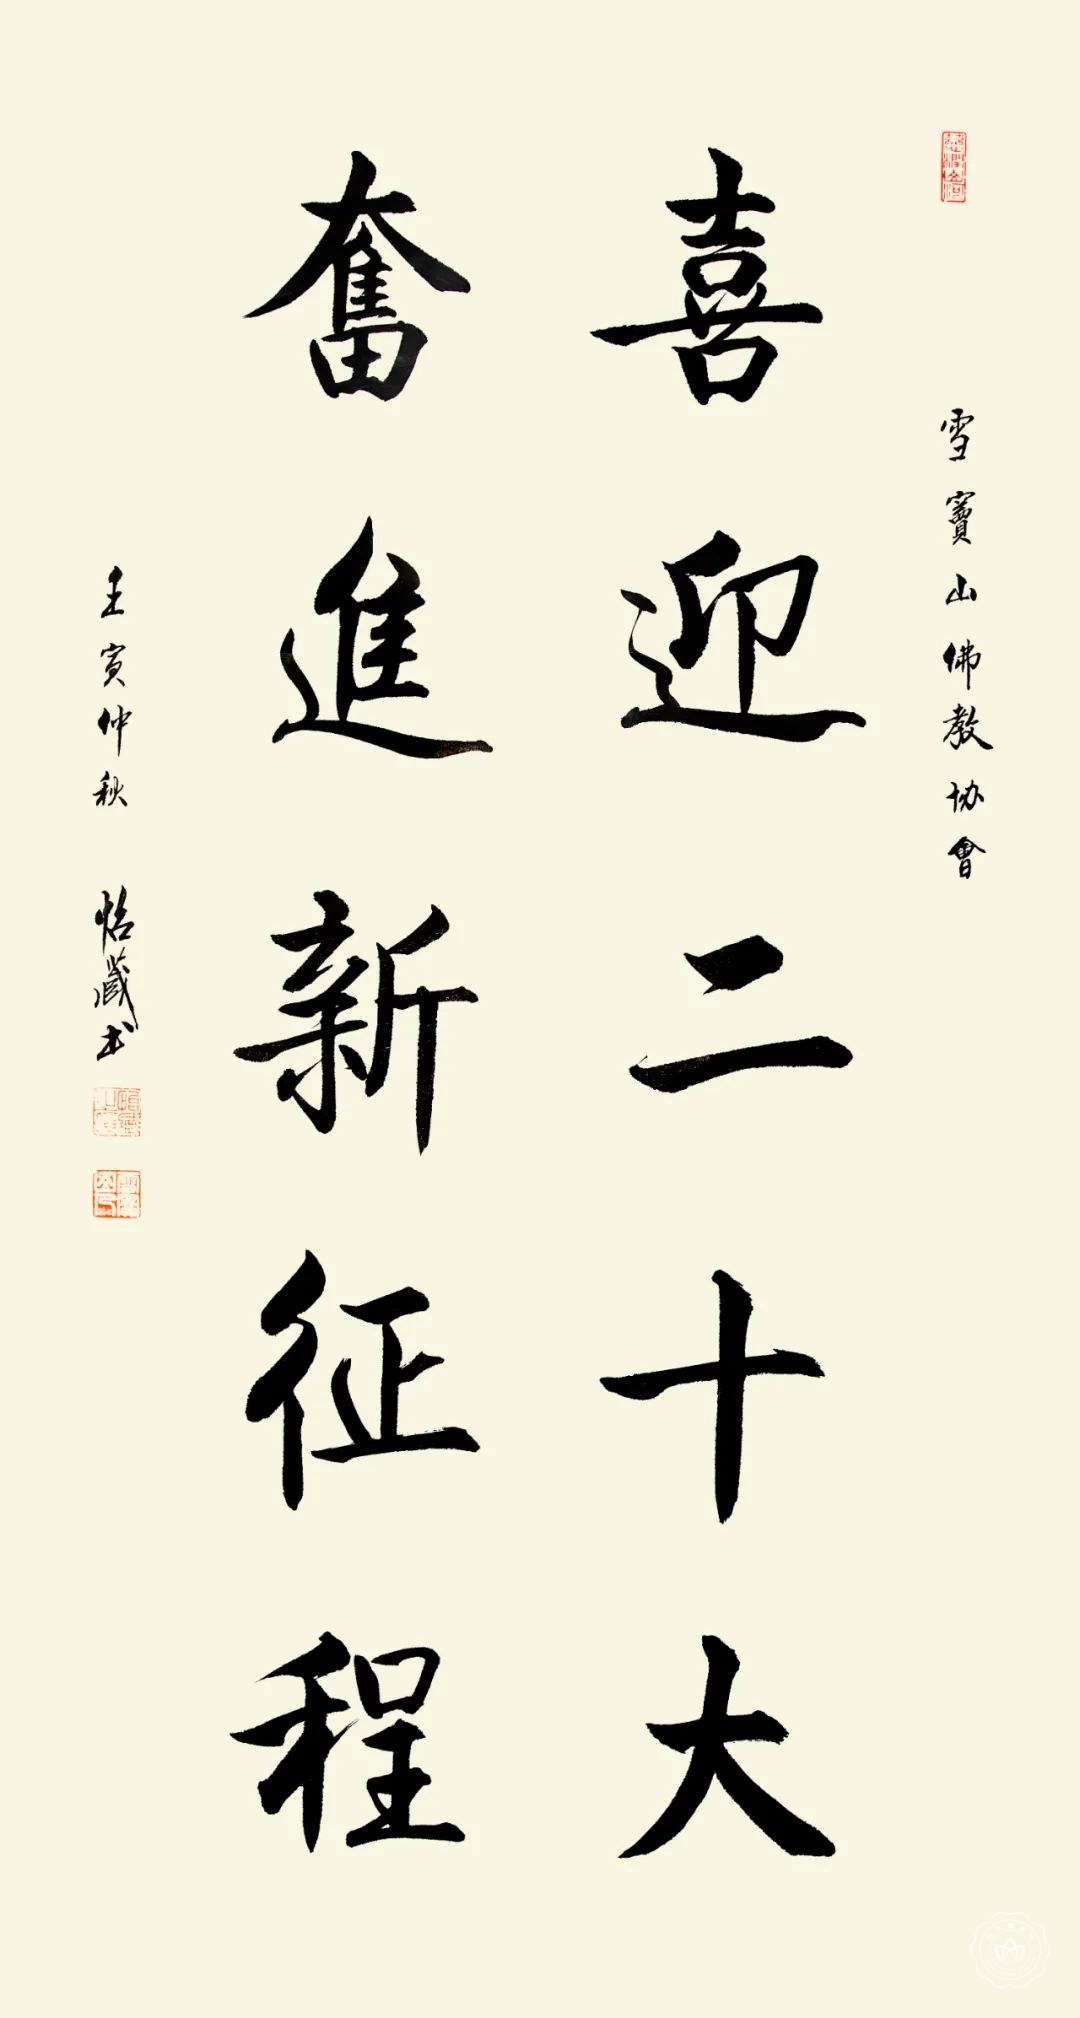 雪竇山佛教协會
喜迎二十大
奮進新征程
壬寅仲秋 怡藏书